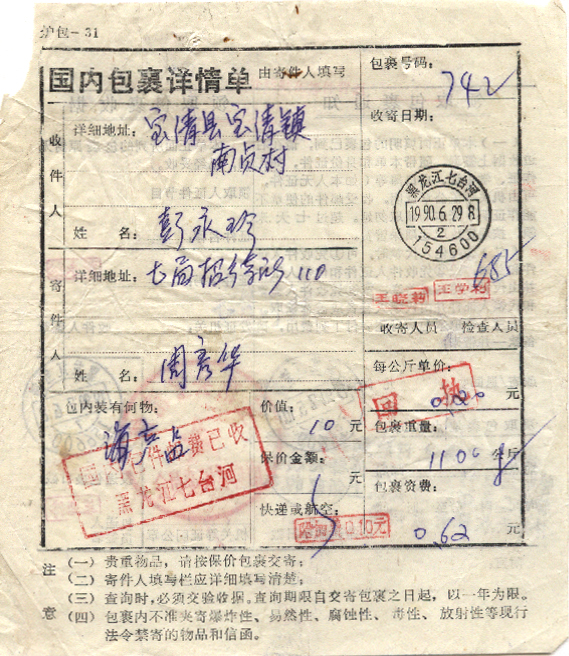 护包-31
国内包裹详情单 由寄件人填写
包裹号码:
742
收件人
详细地址:宝清县宝清镇
南贞村
姓 名:彭永珍
收寄日期:
黑龙江七台河
1990.6.29 8
2
154600
寄件人
详细地址:七局招待所 110
685
王晓莉 王学莉
收寄人员 检查人员
姓 名:周彦华
每公斤单价:
元
包内装有何物:
海产品
国内包件邮费已收
黑龙江七台河
价值:
10 元
保价金额:
元
快递或航空:
0.10元
包裹重量:
1100 公斤
包裹资费:
0.62 元
注意
(一)贵重物品,请按保价包裹交寄;
(二)寄件人填写栏应详细填写清楚;
(三)查询时,必须交验收据。查询期限自交寄包裹之日起,以一年为限。
(四)包裹内不准夹寄爆炸性、易然性、腐蚀性、毒性、放射性等现行
法令禁寄的物品和信函。